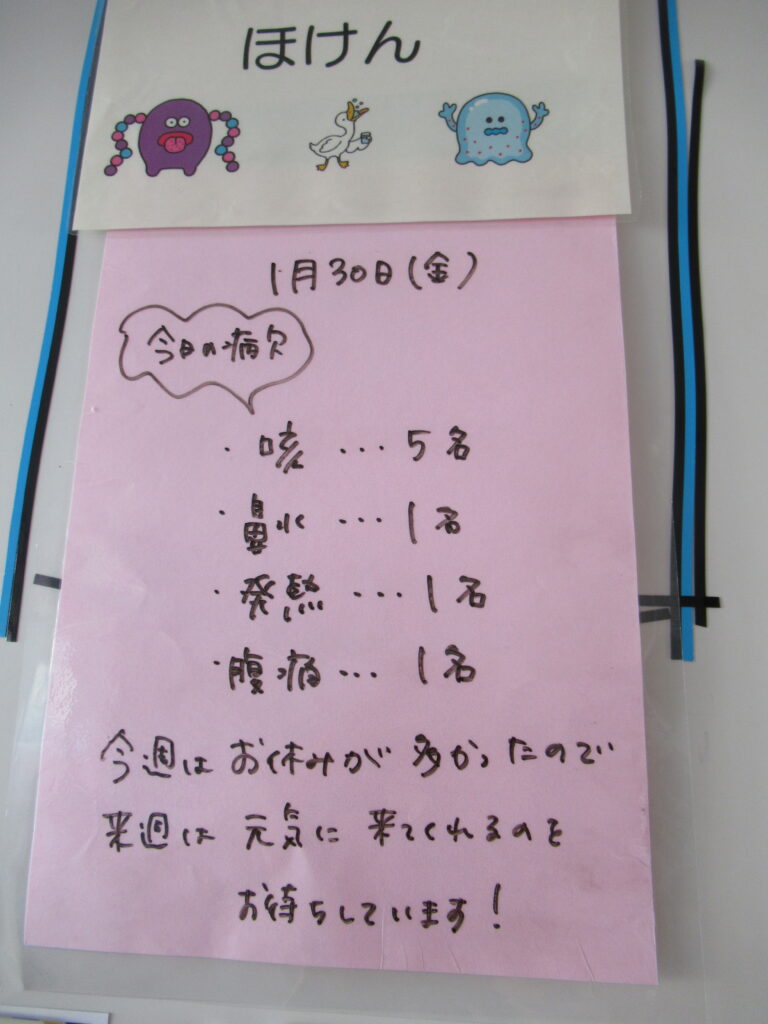 ほけん
1月30日(金)
今日の病欠
・咳・・・5名
・鼻水・・・1名
・発熱・・・1名
・腹痛・・・1名
今週はお休みが多かったので
来週は元気に来てくれるのを
お待ちしています!